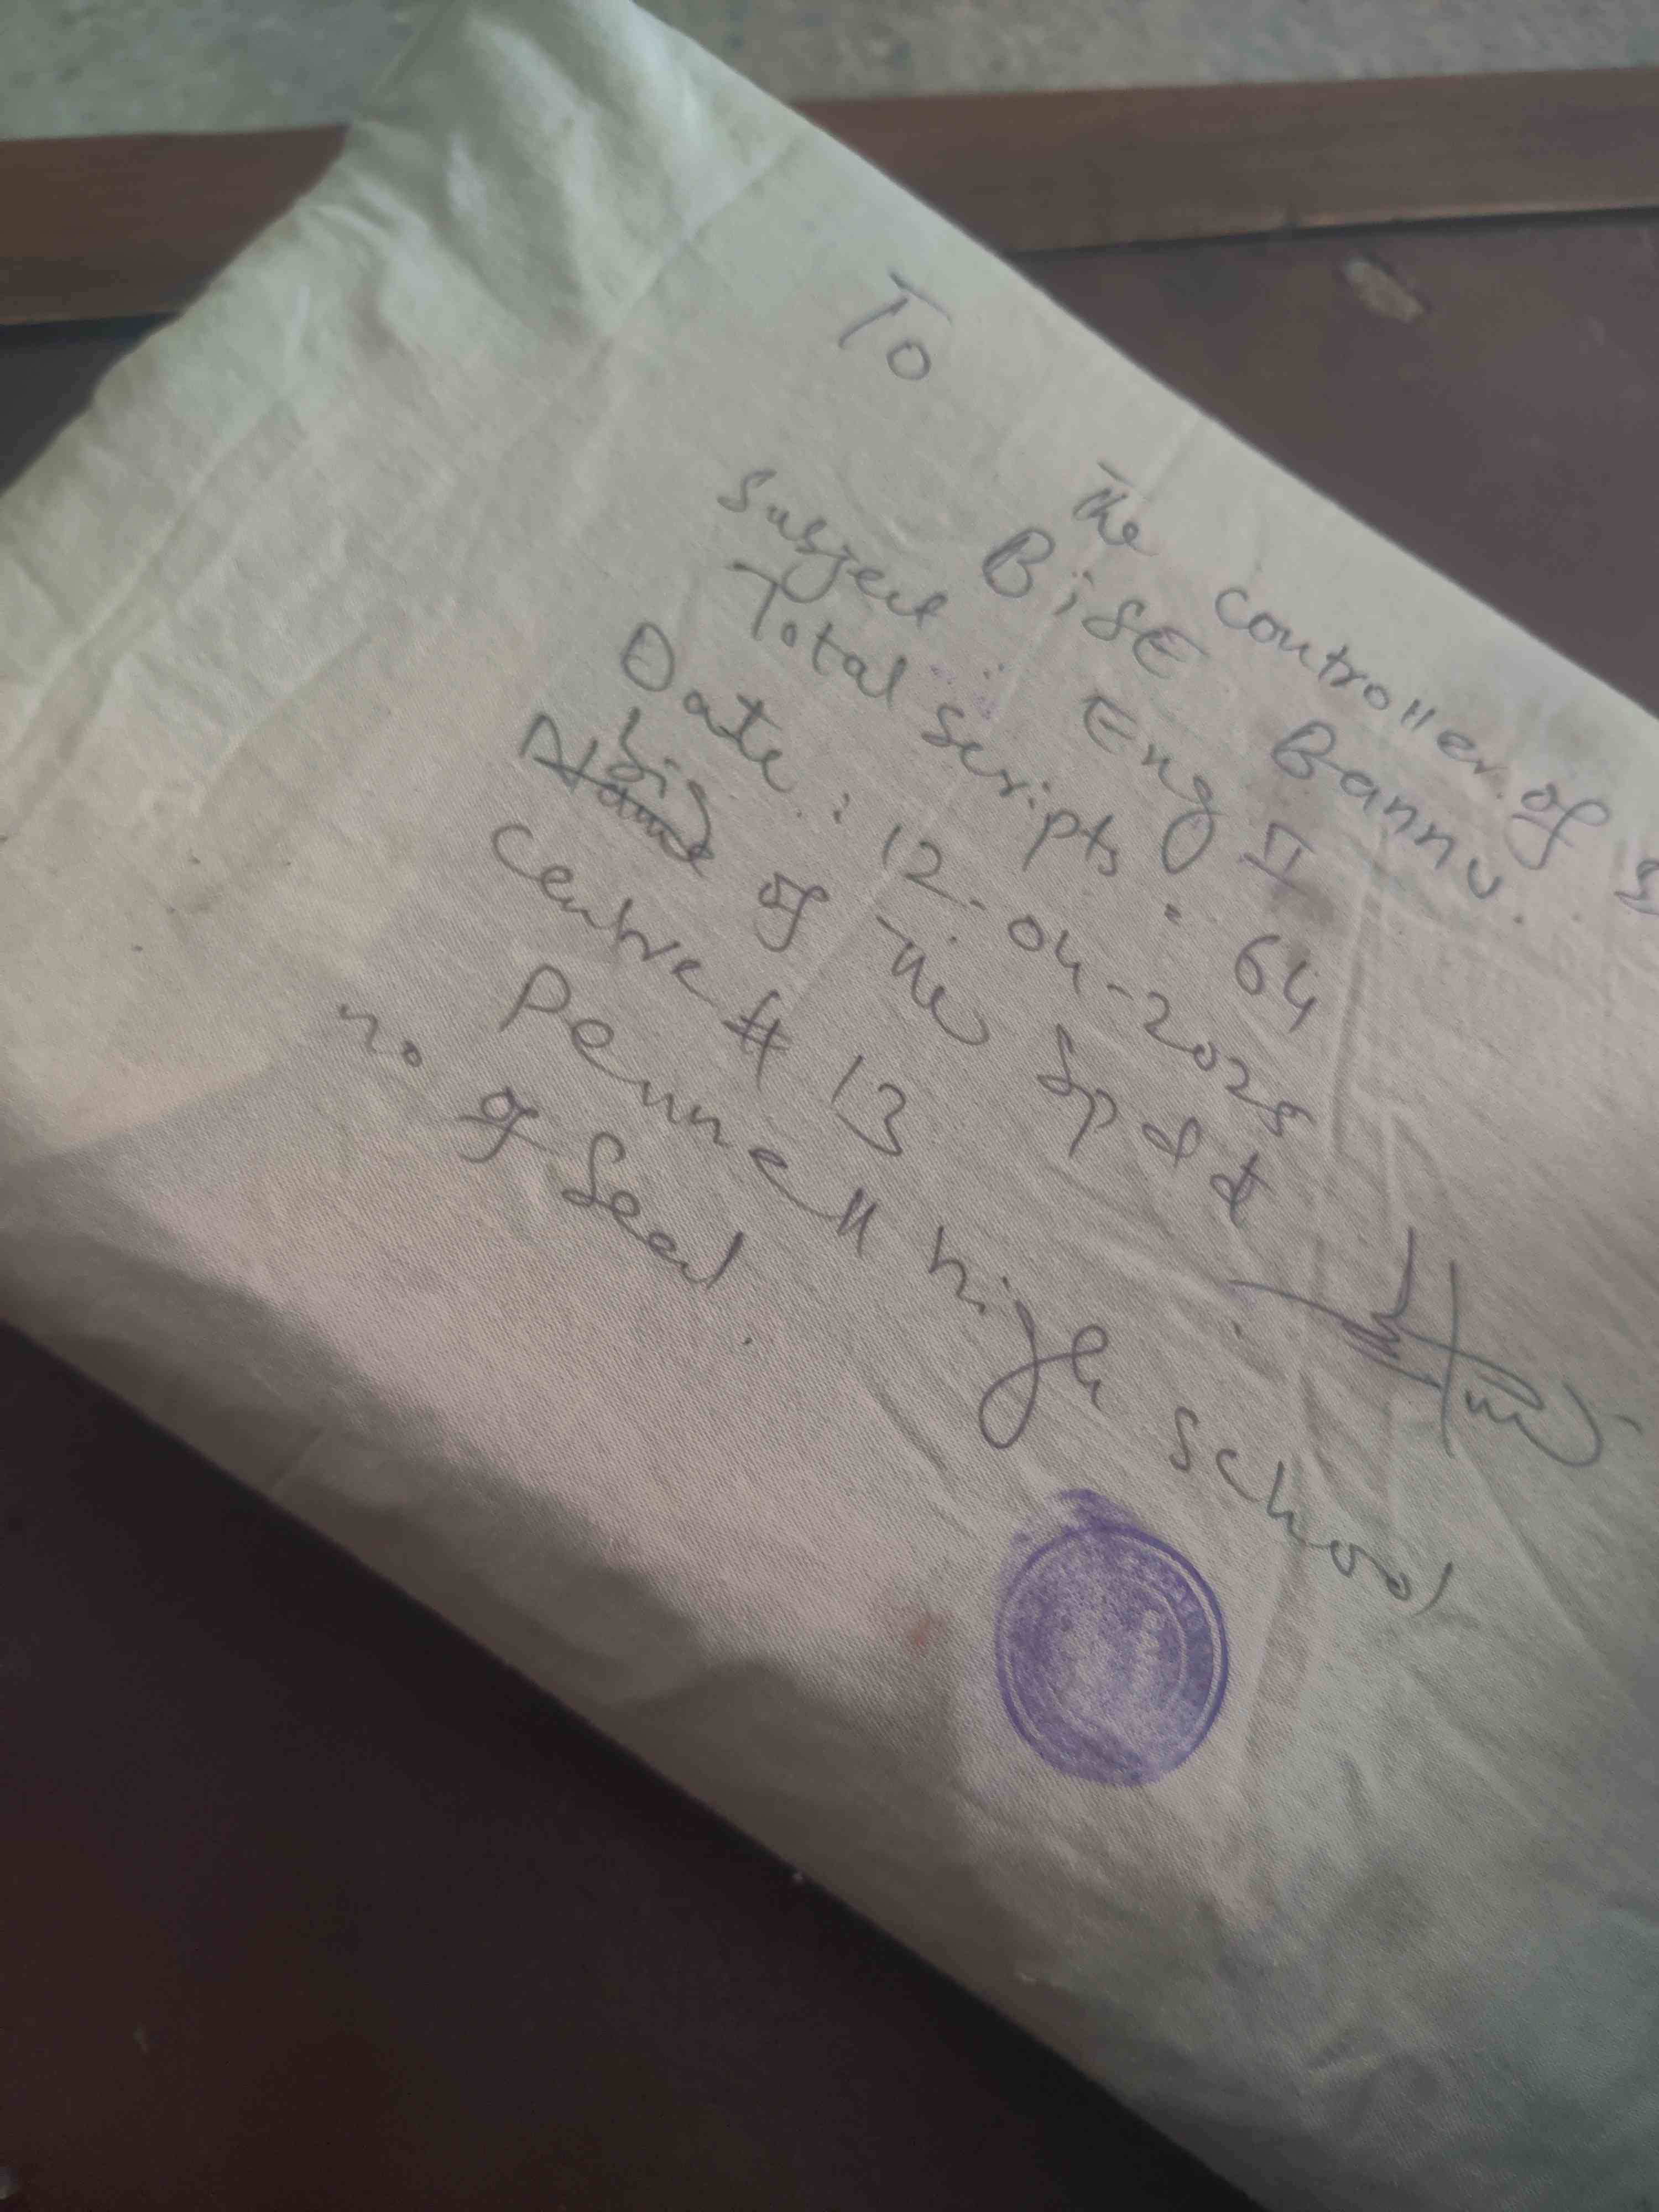 To
The controller of
BiSE Bannu.
Subject : Eng II
Total scripts = 64
Date : 12-04-2025
Sig of the Spdt
Centre # 13
Pennell high school
no of Seal.